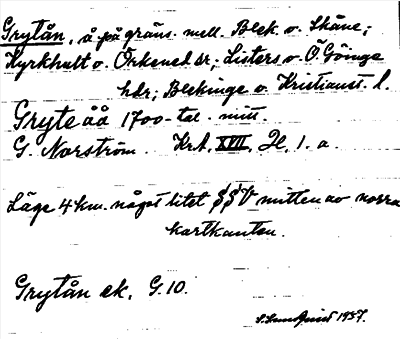 Grytån, å på gräns mell. Blek. o. Skåne;
Kyrkhult o. Örkened sr; Listers o. Ö. Göinge
hdr; Blekinge o. Kristianst. l.
Gryte åå 1700-tal. mitt.
G. Norström. Krt. XVIII, H, 1. a.
Läge 4 km. något litet SSV mitten av norra
kartkanten.
Grytån ek. G.10.
S. Sundquist 1937.